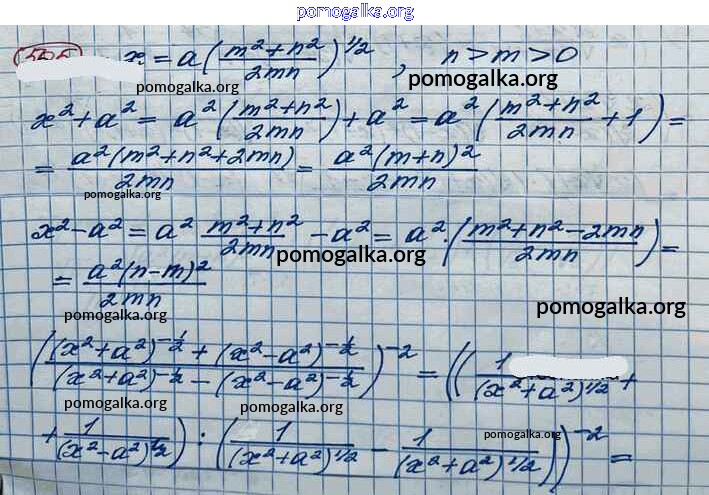 pomogalka.org
505 x = a((m²+n²)/(2mn))^(1/2), n > m > 0
pomogalka.org pomogalka.org
x² + a² = a²((m²+n²)/(2mn)) + a² = a²((m²+n²)/(2mn) + 1) =
pomogalka.org
= (a²(m²+n²+2mn))/(2mn) = (a²(m+n)²)/(2mn)
pomogalka.org
x² - a² = a² (m²+n²)/(2mn) - a² = a² · ((m²+n²-2mn)/(2mn)) =
pomogalka.org
= (a²(n-m)²)/(2mn)
pomogalka.org pomogalka.org
(((x²+a²)^(-1/2) + (x²-a²)^(-1/2))/((x²+a²)^(-1/2) - (x²-a²)^(-1/2)))^(-2) = ((1/(x²+a²)^(1/2) +
pomogalka.org pomogalka.org
+ 1/(x²-a²)^(1/2)) : (1/(x²+a²)^(1/2) - 1/(x²+a²)^(1/2)))^(-2) =
pomogalka.org